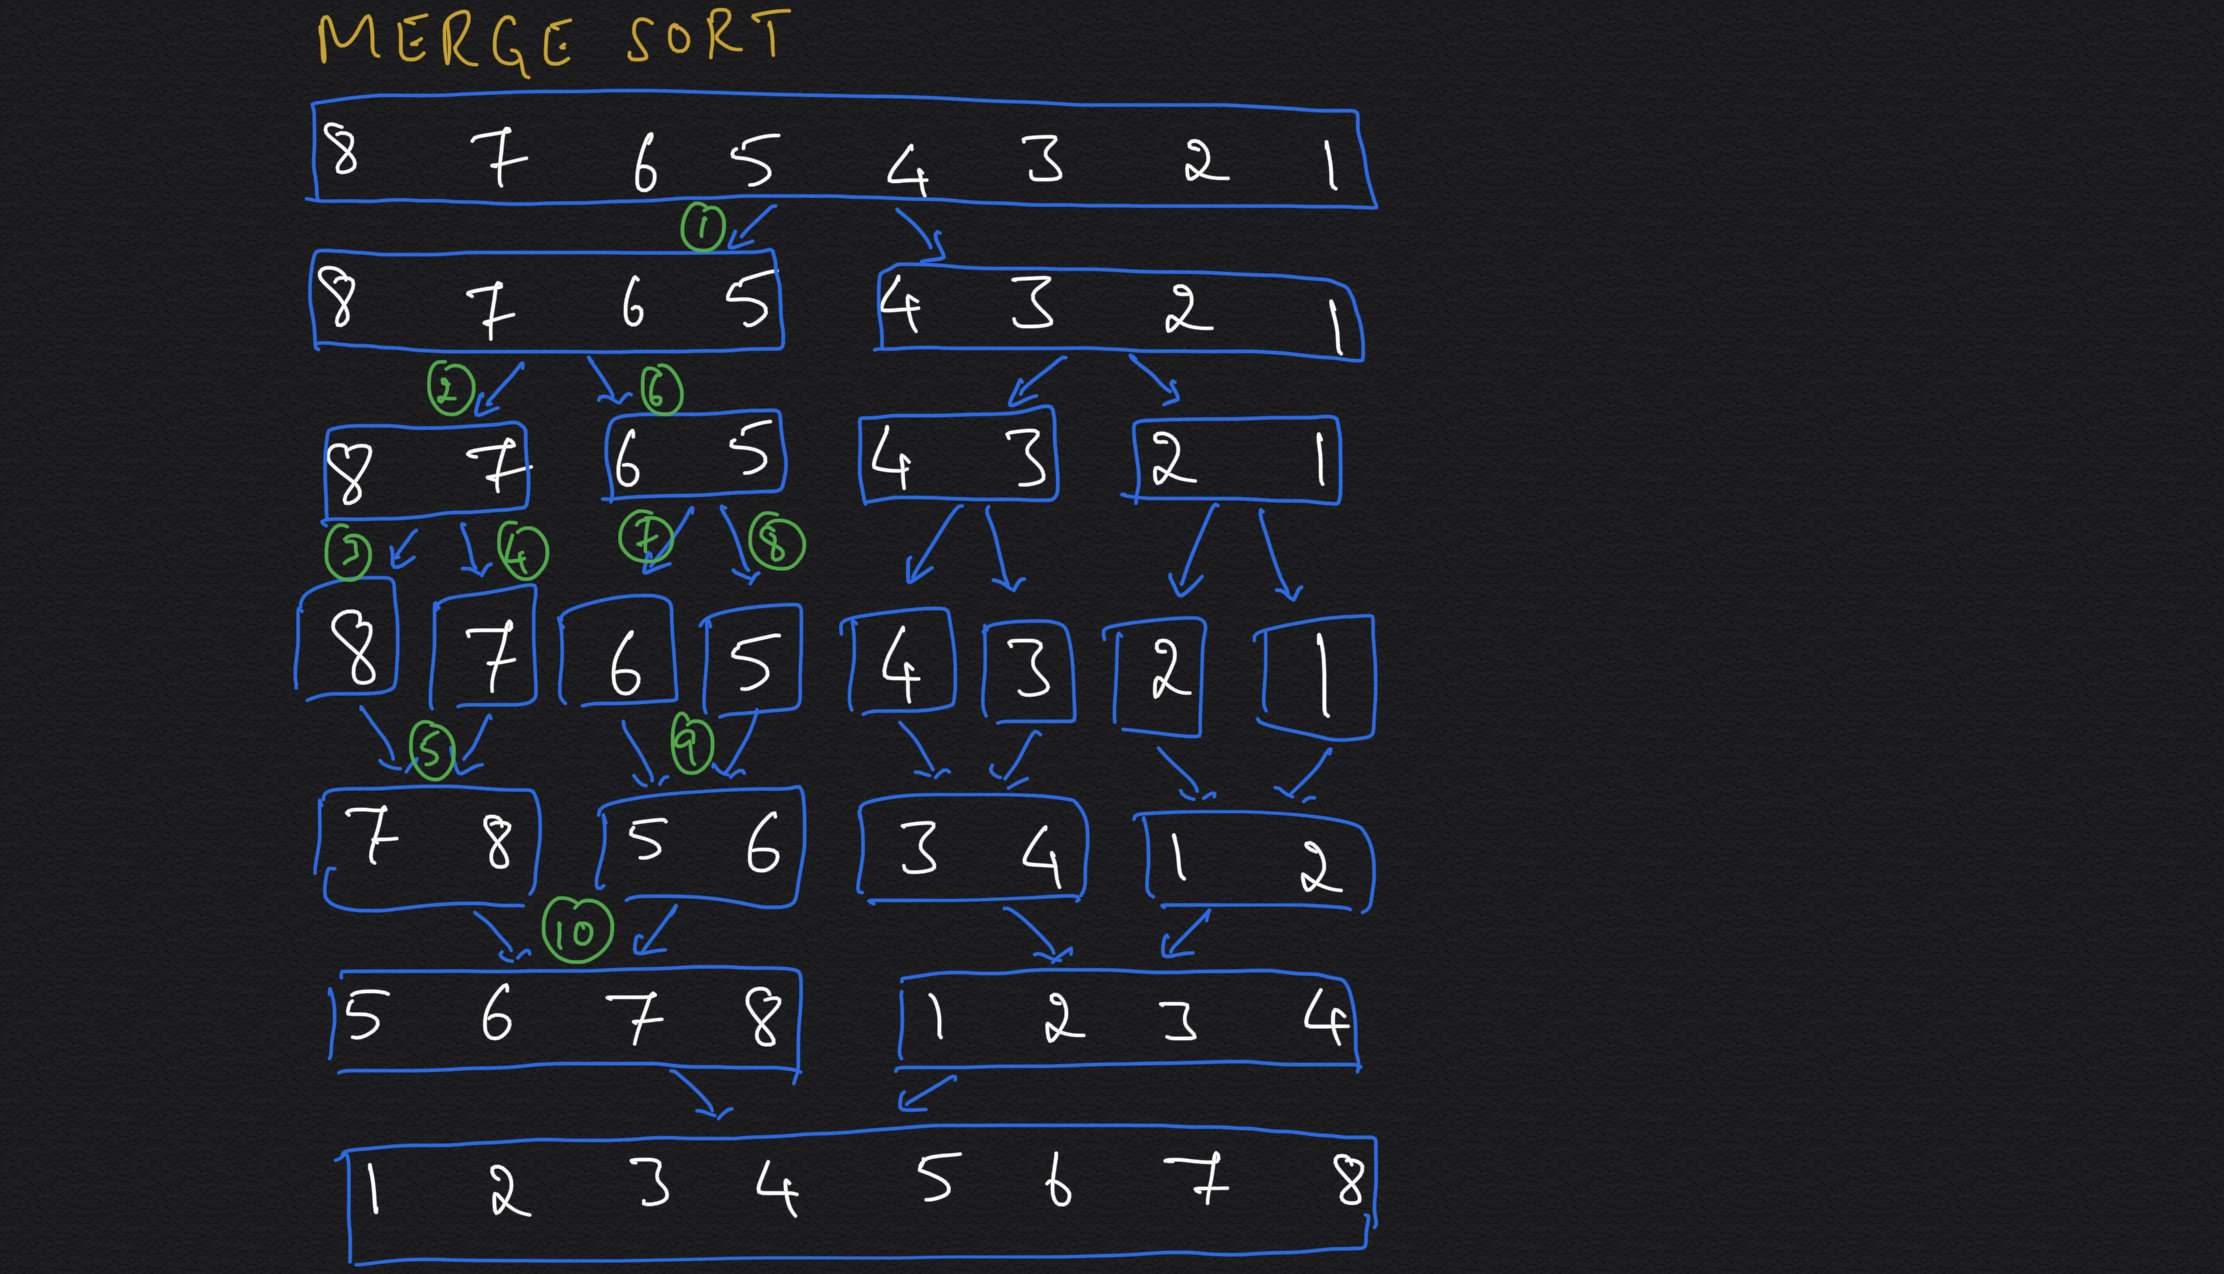 MERGE SORT
8 7 6 5 4 3 2 1
1
8 7 6 5 4 3 2 1
2 6
8 7 6 5 4 3 2 1
3 4 7 8
8 7 6 5 4 3 2 1
5 9
7 8 5 6 3 4 1 2
10
5 6 7 8 1 2 3 4
1 2 3 4 5 6 7 8